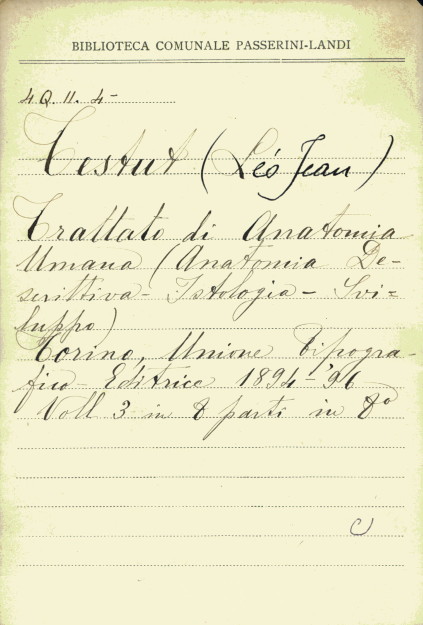 BIBLIOTECA COMUNALE PASSERINI-LANDI
4Q. 11. 4-
Testut (Léo Jean)
Trattato di Anatomia
Umana (Anatomia De-
scrittiva - Istologia - Svi=
luppo)
Torino, Unione Tipogra-
fico Editrice 1894-'96
Voll 3 in 8 parti in 8º